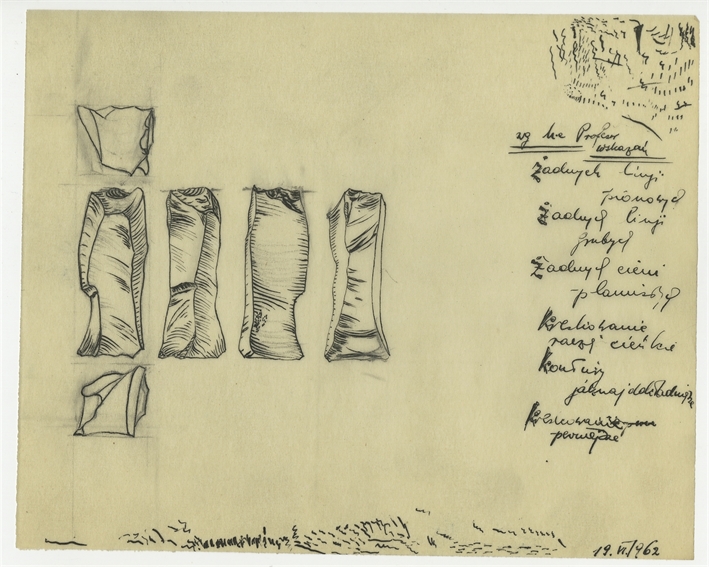 wg Profesor
wskazań
żadnych linji
pionowych
żadnych linji
grubych
żadnych cieni
plamistych
Kreskowanie
raczej cieńkie
Kontury
jaknajdokładniejsze
Kreskowanie
pewniejsze
19.VI.1962